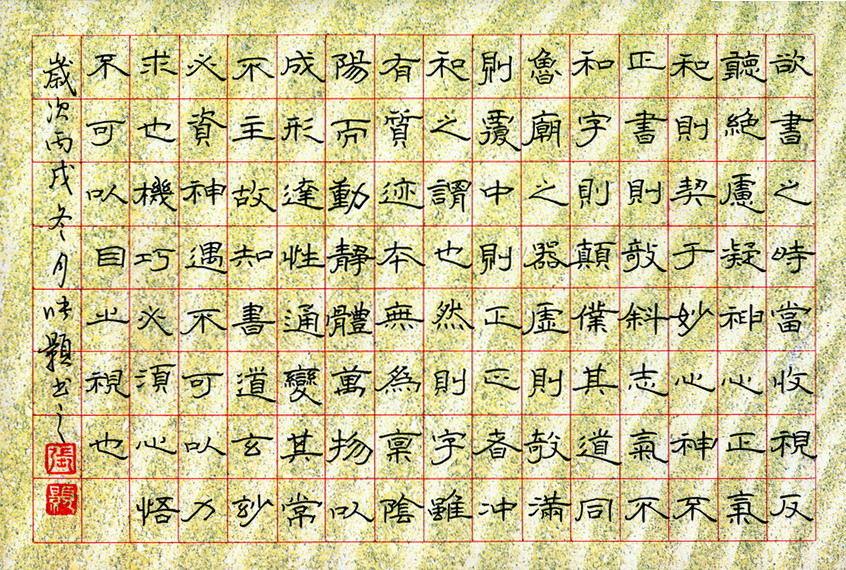 欲書之時當收視反
聽絕慮凝神心正氣
和則契于妙心神不
正書則敧斜志氣不
和字則顛僕其道同
魯廟之器虛則敧滿
則覆中則正正者沖
和之謂也然則字雖
有質迹本無為稟陰
陽而動靜體萬物以
成形達性通變其常
不主故知書道玄妙
必資神遇不可以力
求也機巧必須心悟
不可以目之視也
歲次丙戌冬月張書之